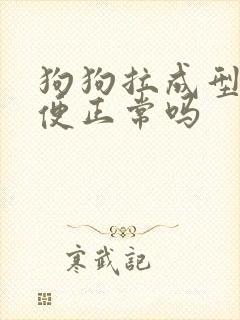 狗狗拉成型
便正常吗
寒武記